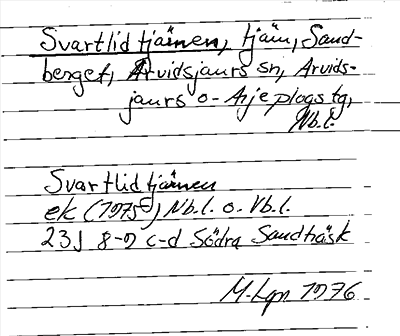 Svartlidtjärnen, tjärn, Sand-
berget, Arvidsjaurs sn, Arvids-
jaurs o- Arjeplogs tg,
Nb.l.
Svartlidtjärnen
ek (1975) Nb.l. o. Vb.l.
23J 8-9 c-d Södra Sandträsk
M-Lgn 1976